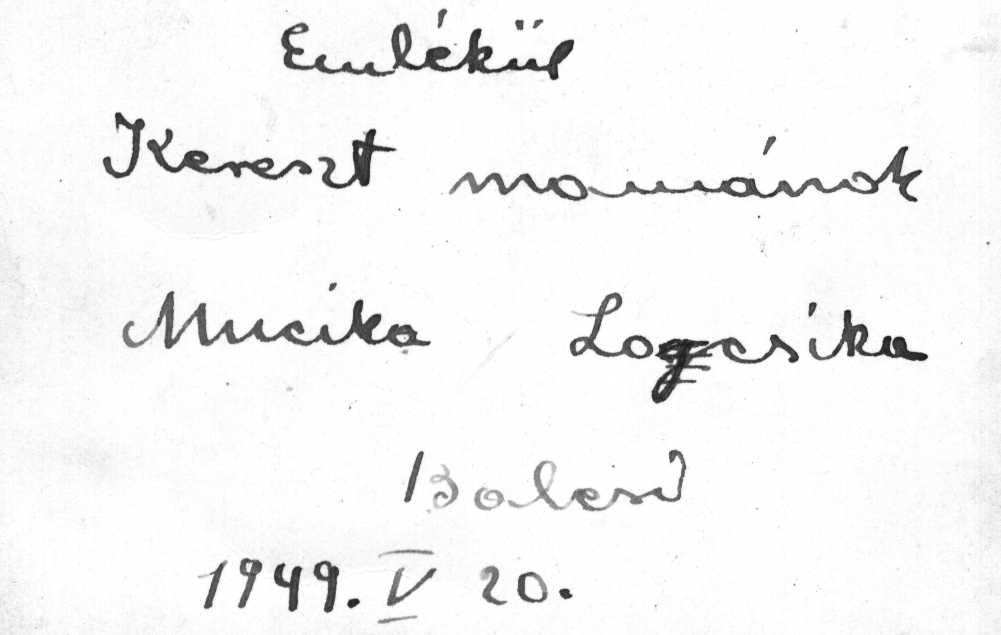 Emlékül
Kereszt mamának
Mucika Lacsika
Balcsi
1949. V 20.